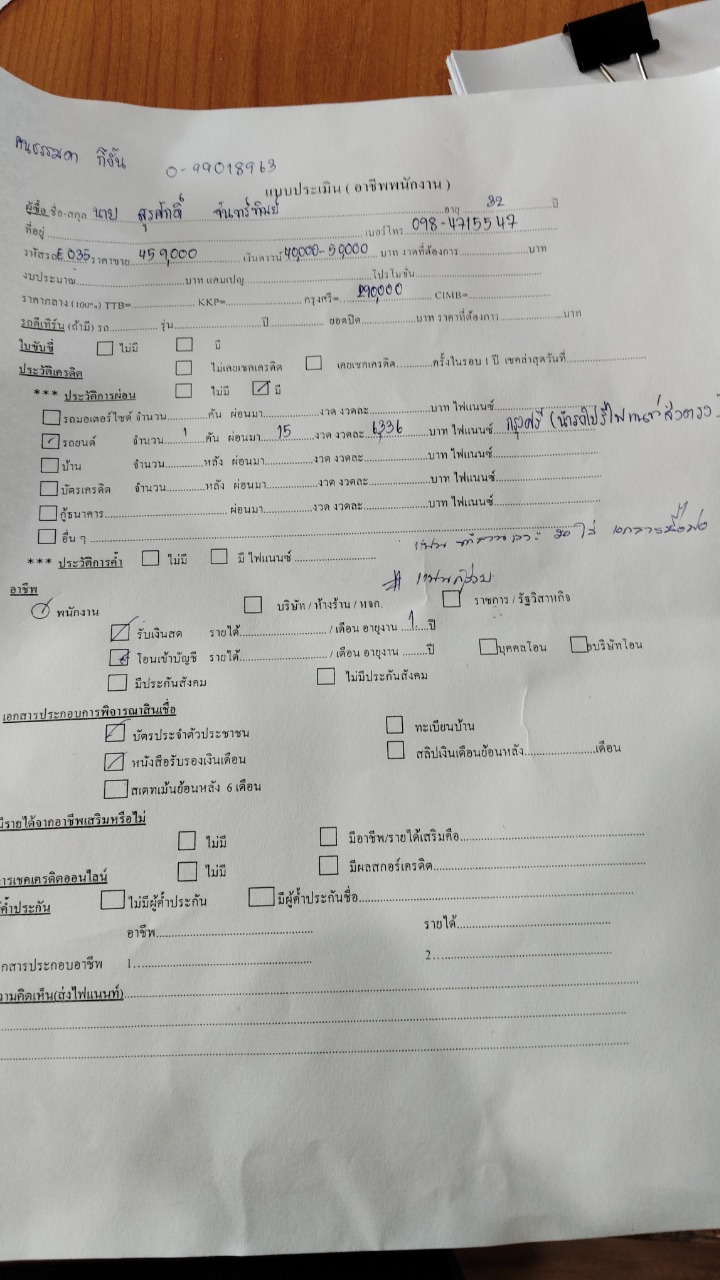 0-99018963
แบบประเมิน ( อาชีพพนักงาน )
ผู้ซื้อ ชื่อ-สกุล นาย สุรศักดิ์ จันทร์ทิพย์ อายุ 32 ปี
ที่อยู่ เบอร์โทร 098-4715547
รหัสรถ E 035 ราคาขาย 459,000 เงินดาวน์ 40,000-50,000 บาท งวดที่ต้องการ บาท
งบประมาณ บาท แคมเปญ โปรโมชั่น
ราคากลาง (100%) TTB= KKP= กรุงศรี= 290,000 CIMB=
รถตีเทิร์น (ถ้ามี) รถ รุ่น ปี ยอดปิด บาท ราคาที่ต้องการ บาท
ใบขับขี่ ไม่มี มี
ประวัติเครดิต ไม่เคยเชคเครดิต เคยเชคเครดิต ครั้งในรอบ 1 ปี เชคล่าสุดวันที่
*** ประวัติการผ่อน ไม่มี มี
รถมอเตอร์ไซด์ จำนวน คัน ผ่อนมา งวด งวดละ บาท ไฟแนนซ์
รถยนต์ จำนวน 1 คัน ผ่อนมา 15 งวด งวดละ 6,336 บาท ไฟแนนซ์ กรุงศรี
บ้าน จำนวน หลัง ผ่อนมา งวด งวดละ บาท ไฟแนนซ์
บัตรเครดิต จำนวน หลัง ผ่อนมา งวด งวดละ บาท ไฟแนนซ์
กู้ธนาคาร ผ่อนมา งวด งวดละ บาท ไฟแนนซ์
อื่น ๆ
*** ประวัติการค้ำ ไม่มี มี ไฟแนนซ์
อาชีพ
พนักงาน บริษัท / ห้างร้าน / หจก. ราชการ / รัฐวิสาหกิจ
รับเงินสด รายได้ / เดือน อายุงาน 1 ปี
โอนเข้าบัญชี รายได้ / เดือน อายุงาน ปี บุคคลโอน บริษัทโอน
มีประกันสังคม ไม่มีประกันสังคม
เอกสารประกอบการพิจารณาสินเชื่อ
บัตรประจำตัวประชาชน ทะเบียนบ้าน
หนังสือรับรองเงินเดือน สลิปเงินเดือนย้อนหลัง เดือน
สเตทเม้นย้อนหลัง 6 เดือน
มีรายได้จากอาชีพเสริมหรือไม่
ไม่มี มีอาชีพ/รายได้เสริมคือ
การเชคเครดิตออนไลน์ ไม่มี มีผลสกอร์เครดิต
ค้ำประกัน ไม่มีผู้ค้ำประกัน มีผู้ค้ำประกันชื่อ
อาชีพ รายได้
กสารประกอบอาชีพ 1. 2.
วามคิดเห็น(ส่งไฟแนนท์)